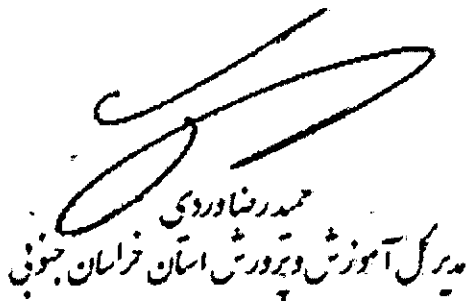 حمیدرضا وردی
مدیر کل آموزش و پرورش استان خراسان جنوبی